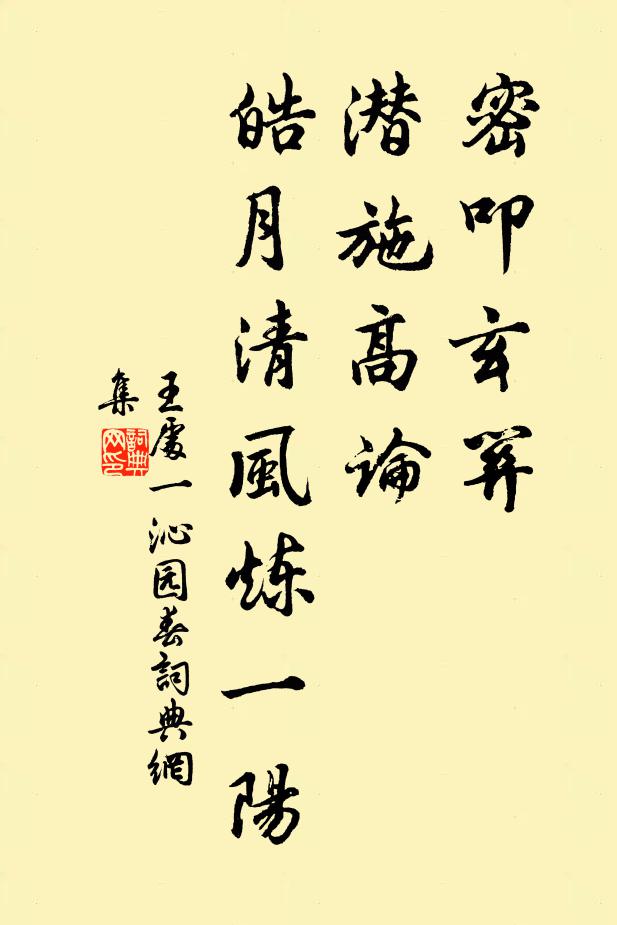 密叩玄关
潜施高論
皓月清風炼一陽
王處一沁园春詞典網
集
詞典
网印